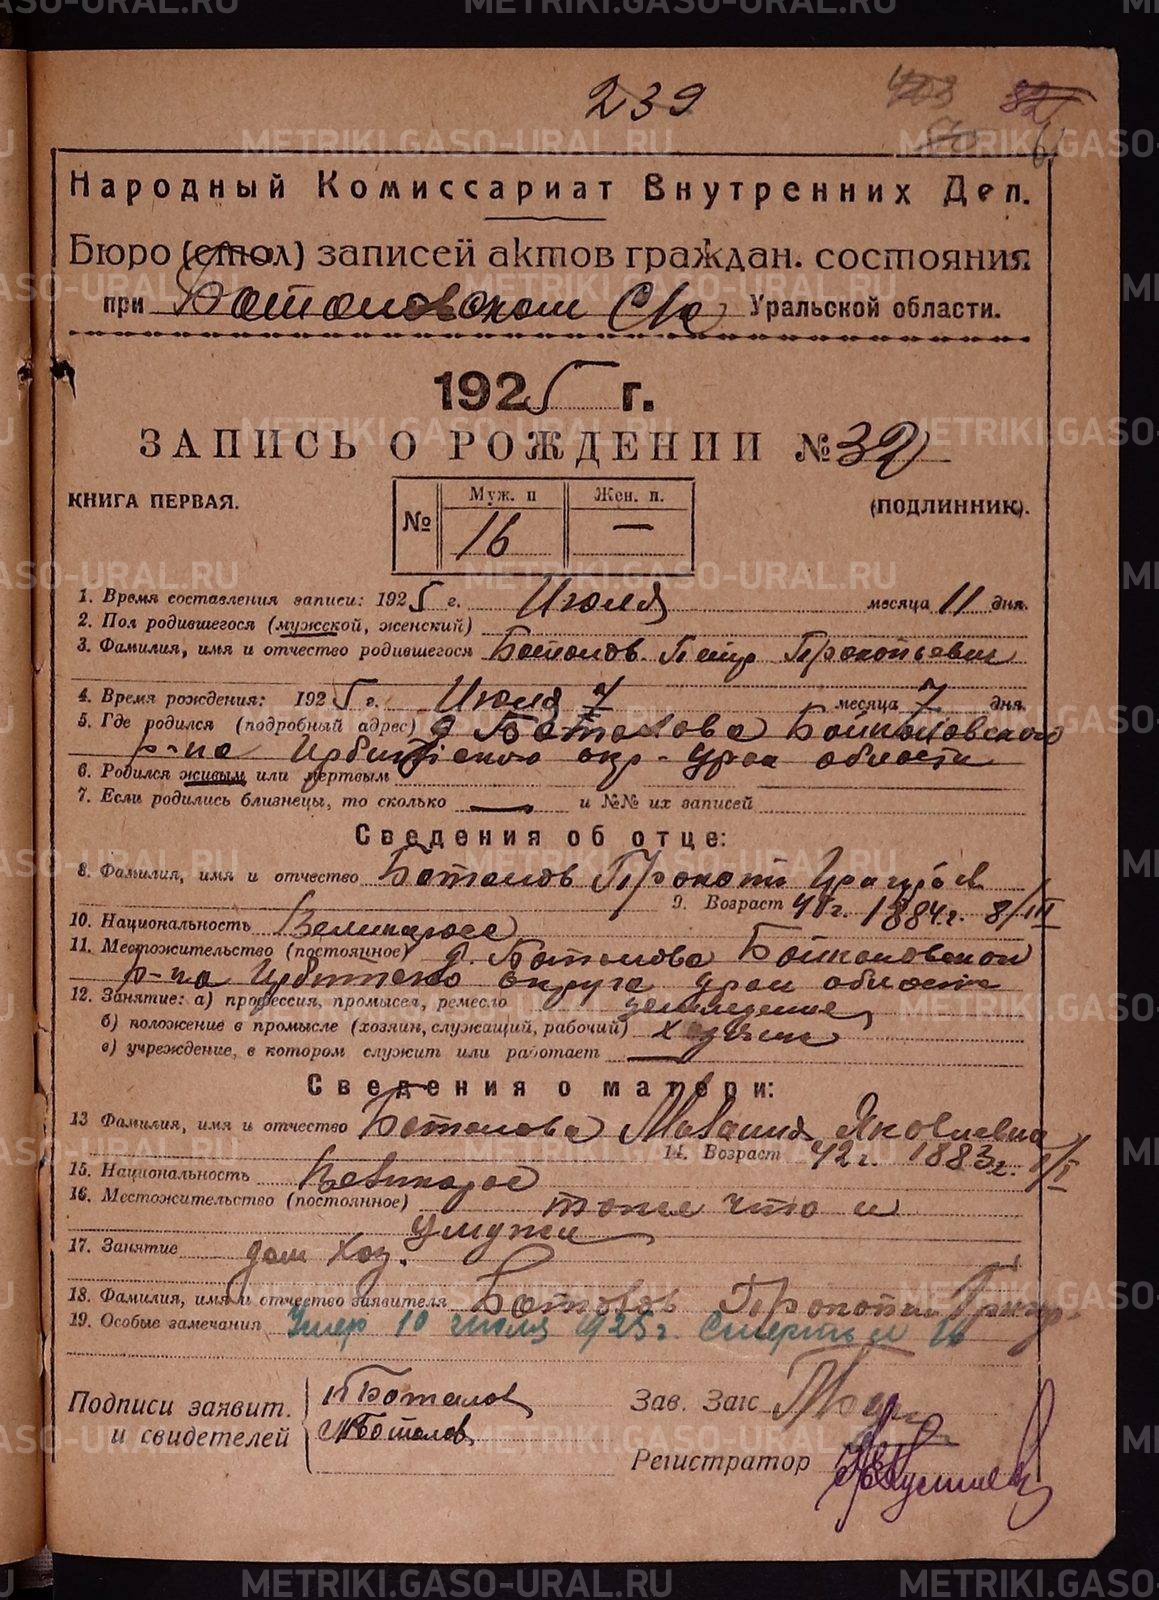 239
Народный Комиссариат Внутренних Дел.
Бюро (стол) записей актов граждан. состояния
при Боталовском С/с Уральской области.
1925 г.
ЗАПИСЬ О РОЖДЕНИИ № 32
КНИГА ПЕРВАЯ. (ПОДЛИННИК).
№ Муж. п Жен. п.
16 —
1. Время составления записи: 1925 г. Июля месяца 11 дня.
2. Пол родившегося (мужской, женский)
3. Фамилия, имя и отчество родившегося Боталов Петр Прокопьевич
4. Время рождения: 1925 г. Июля 7 месяца 7 дня.
5. Где родился (подробный адрес) д. Боталова Байкаловского
р-на Ирбитского окр. Урал области
6. Родился живым или мертвым
7. Если родились близнецы, то сколько — и №№ их записей
Сведения об отце:
8. Фамилия, имя и отчество Боталов Прокопи
9. Возраст 41 г. 1884 г. 8/III
10. Национальность Великаросс
11. Местожительство (постоянное) д. Боталова Байкаловской
р-на Ирбитского округа Урал области
12. Занятие: а) профессия, промысел, ремесло земледелие
б) положение в промысле (хозяин, служащий, рабочий) хозяин
в) учреждение, в котором служит или работает —
Сведения о матери:
13 Фамилия, имя и отчество Боталова Малания Яковлевна
14. Возраст 42 г. 1883 г.
15. Национальность Великарос
16. Местожительство (постоянное) тоже что и
у мужа
17. Занятие дом хоз.
18. Фамилия, имя и отчество заявителя Боталов Прокопи Григор
19. Особые замечания Умер 10 июля 1925 г. Смерть № 16
Подписи заявит. и свидетелей
П Боталов
М Боталов
Зав. Загс
Регистратор
METRIKI.GASO-URAL.RU